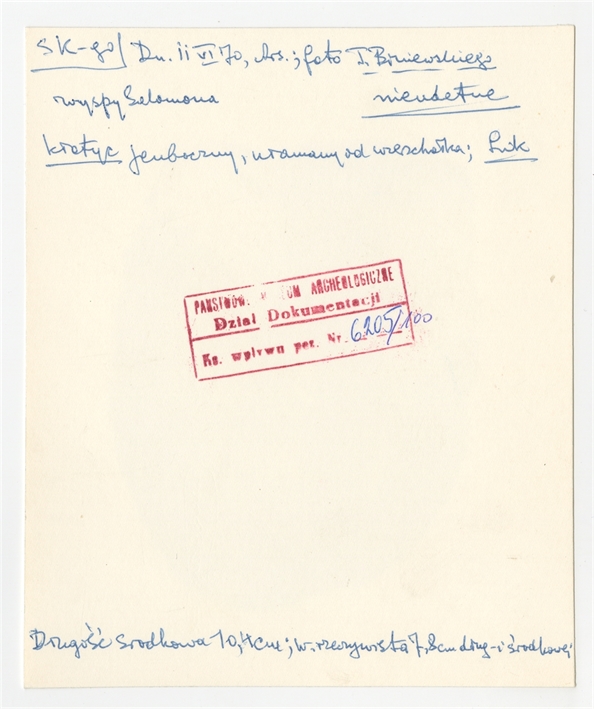 SK-go/ Dn. 11 VI 70, Ars.; foto T. Biniewskiego
wyspy Salomona nieudetne
jenboczny, uramany od wierzchołka; Łuk
PAŃSTWOW. M ZEUM ARCHEOLOGICZNE
Dział Dokumentacji
Ks. wpływu poz. Nr. 6205/100
Długość środkowa 10,4cm; w. rzeczywista 7,8cm dług-i środkowej